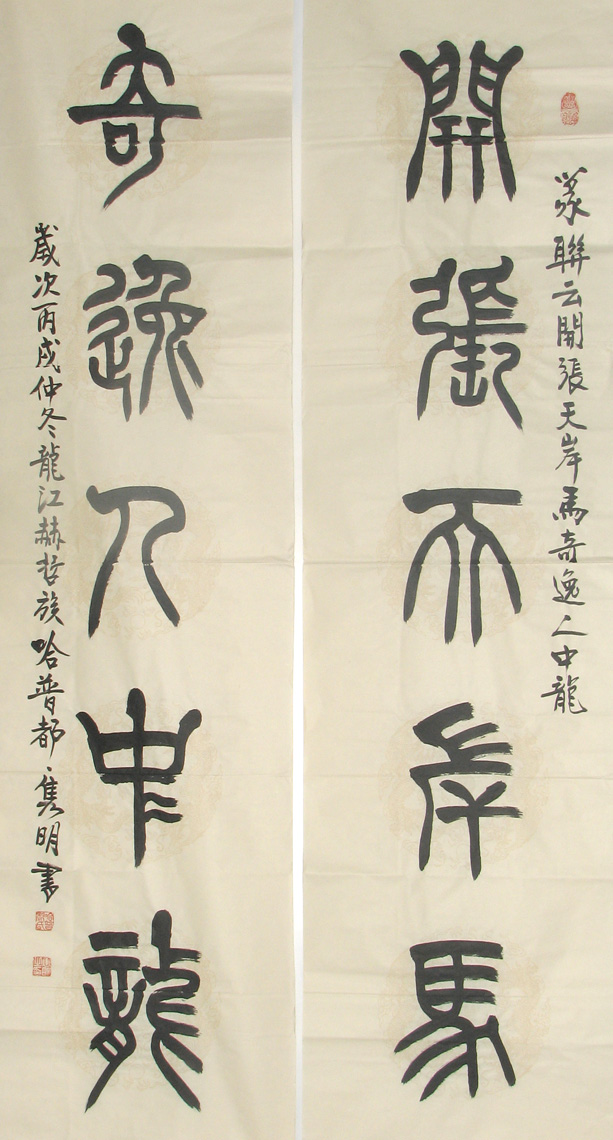 篆聯云開張天岸馬奇逸人中龍
開張天岸馬
奇逸人中龍
歲次丙戌仲冬龍江赫哲族哈普都·隽明書